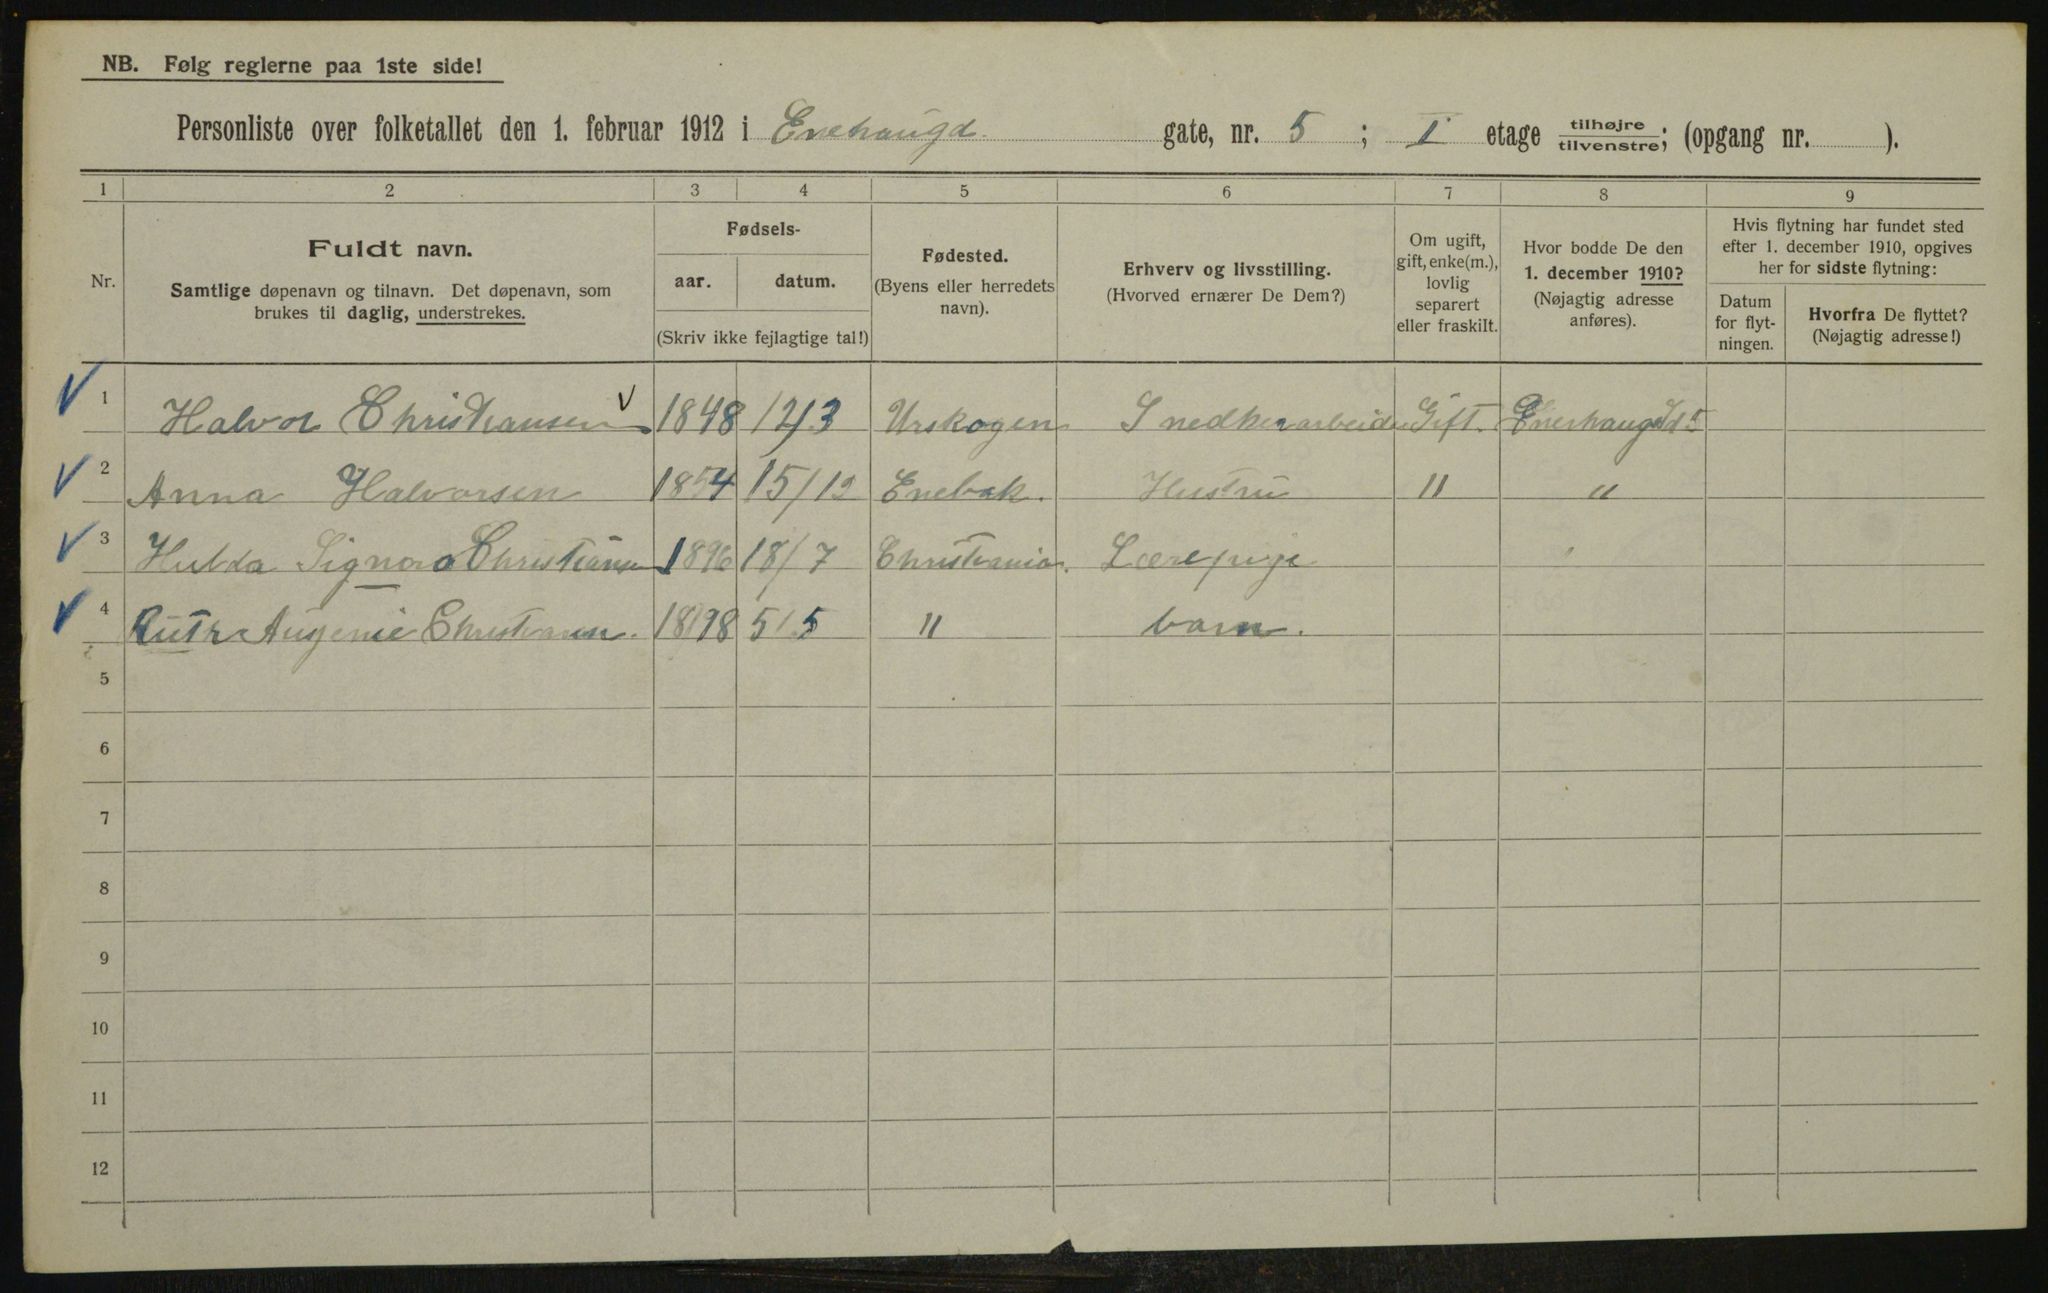 NB. Følg reglerne paa 1ste side!
Personliste over folketallet den 1. februar 1912 i Enehaugd. gate, nr. 5 ; I etage tilhøjre/tilvenstre; (opgang nr. ).
1 2 3 4 5 6 7 8 9
Nr.
Fuldt navn.
Samtlige døpenavn og tilnavn. Det døpenavn, som
brukes til daglig, understrekes.
Fødsels-
aar. datum.
(Skriv ikke fejlagtige tal!)
Fødested.
(Byens eller herredets
navn).
Erhverv og livsstilling.
(Hvorved ernærer De Dem?)
Om ugift,
gift, enke(m.),
lovlig
separert
eller fraskilt.
Hvor bodde De den
1. december 1910?
(Nøjagtig adresse
anføres).
Hvis flytning har fundet sted
efter 1. december 1910, opgives
her for sidste flytning:
Datum
for flyt-
ningen.
Hvorfra De flyttet?
(Nøjagtig adresse!)
1 Halvor Christiansen 1848 12/3 Urskogen Snedkerarbeider Gift. Enerhaugd 5
2 Anna Halvorsen 1854 15/12 Enebak. Hustru " "
3 Hulda Signora Christiansen 1896 18/7 Christiania. Lærepige
4 Ruth Augenie Christiansen. 1898 5/5 " barn.
5
6
7
8
9
10
11
12